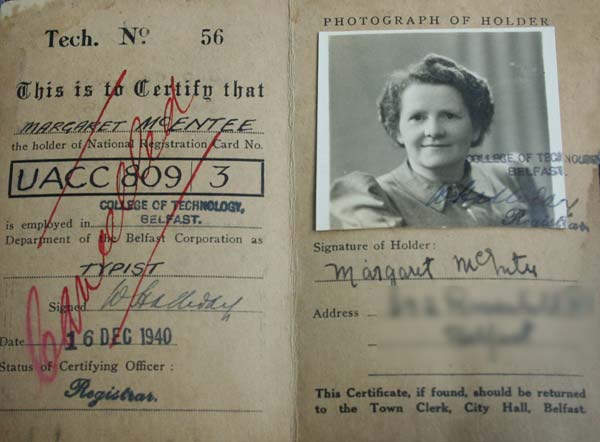 Tech. No. 56
This is to Certify that
MARGARET McENTEE
the holder of National Registration Card No.
UACC 809 3
COLLEGE OF TECHNOLOGY,
BELFAST.
is employed in
Department of the Belfast Corporation as
TYPIST
Signed W Halliday
Date 16 DEC 1940
Status of Certifying Officer :
Registrar.
Cancelled
PHOTOGRAPH OF HOLDER
COLLEGE OF TECHNOLOGY
BELFAST.
W Halliday
Registrar.
Signature of Holder :
Margaret McEntee
Address
This Certificate, if found, should be returned
to the Town Clerk, City Hall, Belfast.